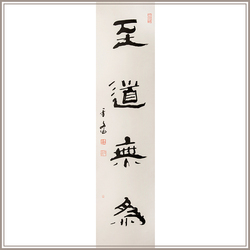 至道無為